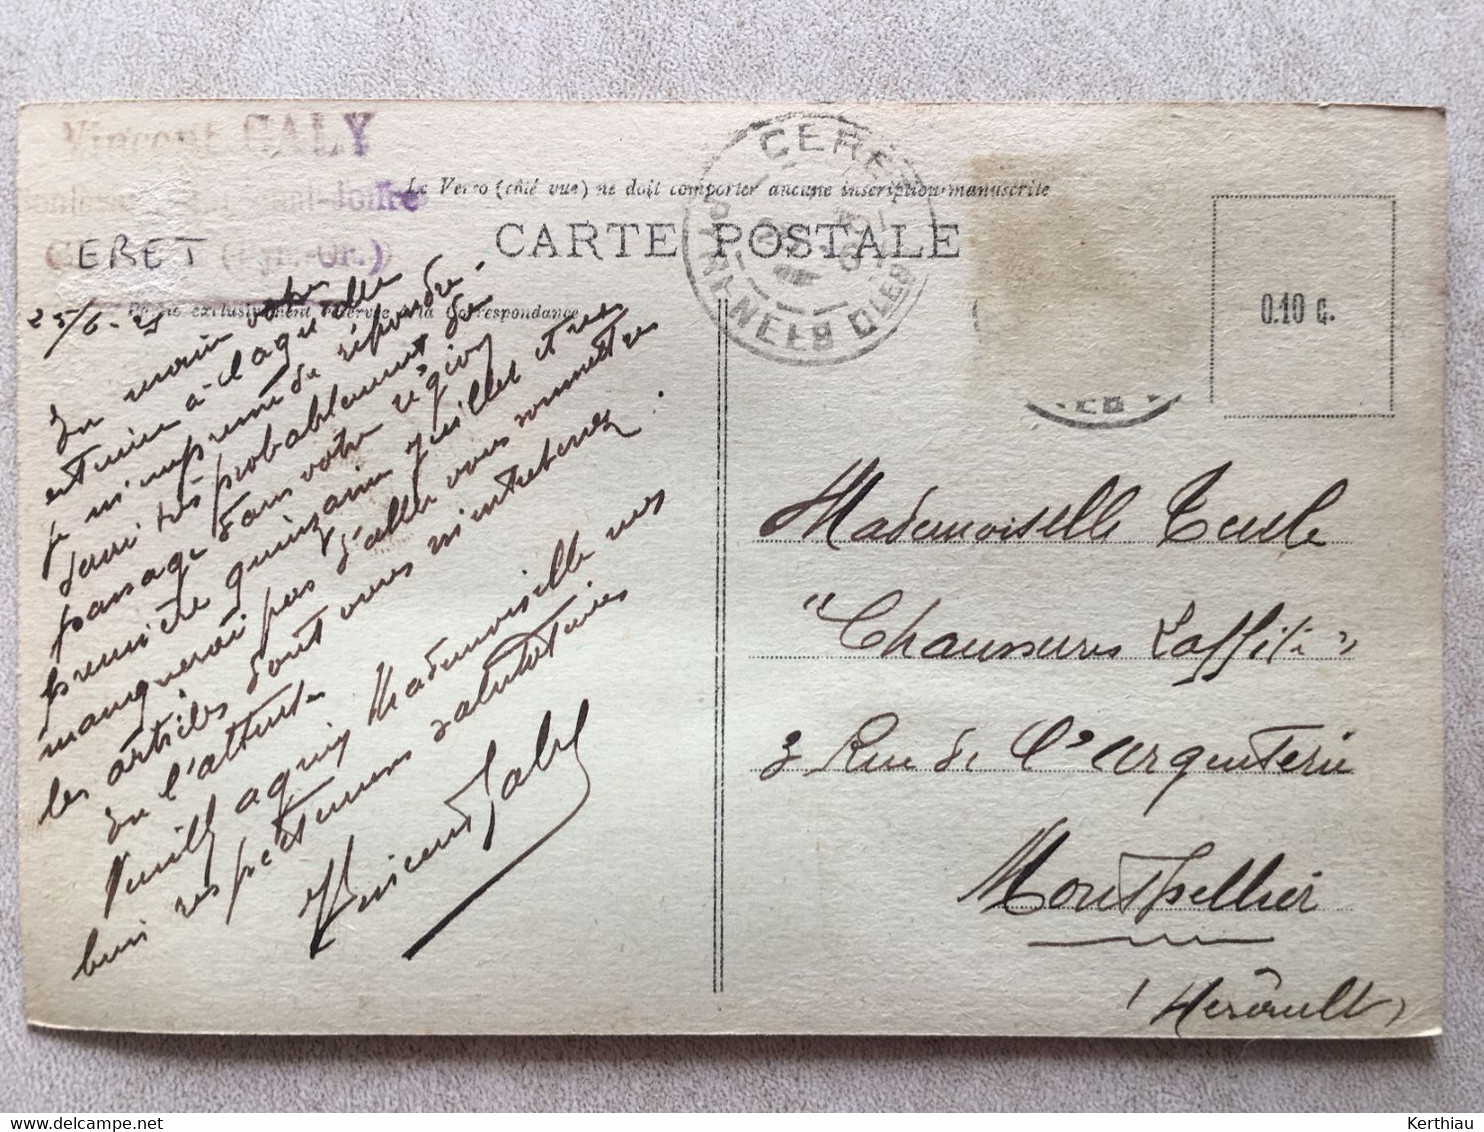 Vincent CALY
CERET (Pyr.-Or.)
Le Verso (côté vue) ne doit comporter aucune inscription manuscrite
CARTE POSTALE
CERET
PYRENEES
0.10 c.
Partie exclusivement réservée à la Correspondance
En main votre
estimée à laquelle
je m'empresse de répondre.
Serai très probablement de
passage dans votre région
première quinzaine juillet et ne
manquerai pas d'aller vous soumettre
les articles dont vous m'entretenez.
En l'attente
Veuillez agréer Mademoiselle mes
bien respectueuses salutations
Vincent Caly
Mademoiselle Teule
"Chaussures Laffite"
3 Rue de l'Argenterie
Montpellier
(Hérault)
Kerthiau